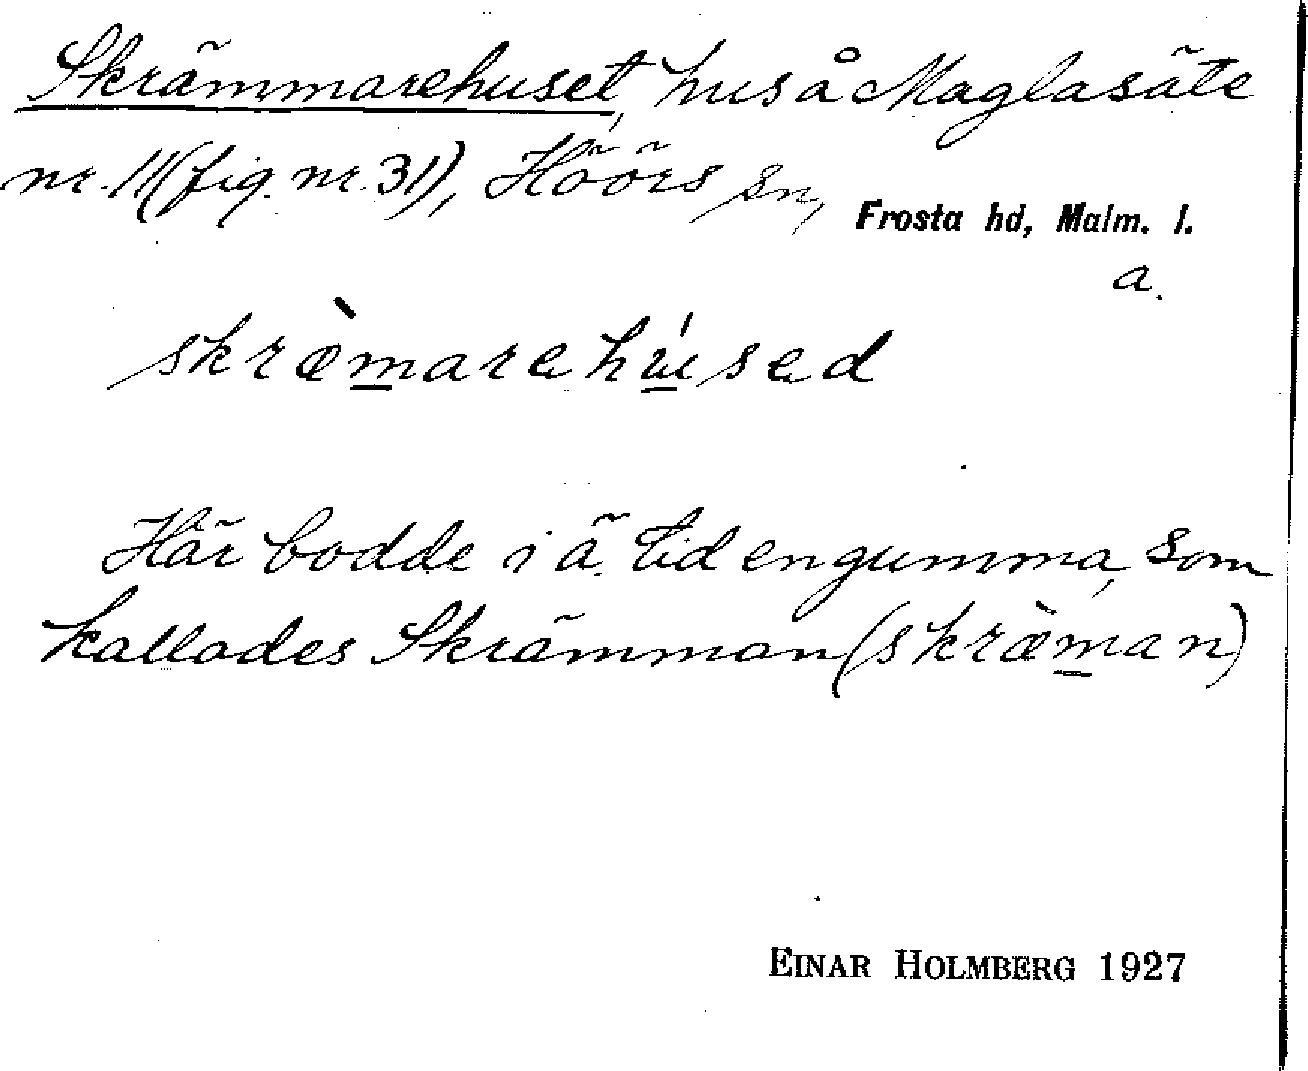 Skrämmarehuset, hus å Maglasäte
nr. 11 (fig. nr. 31), Höörs sn,
Frosta hd, Malm. l.
a.
skræ̀marehúsed
Här bodde i ä. tid en gumma, som
kallades Skrämman (skræ̀man)
EINAR HOLMBERG 1927